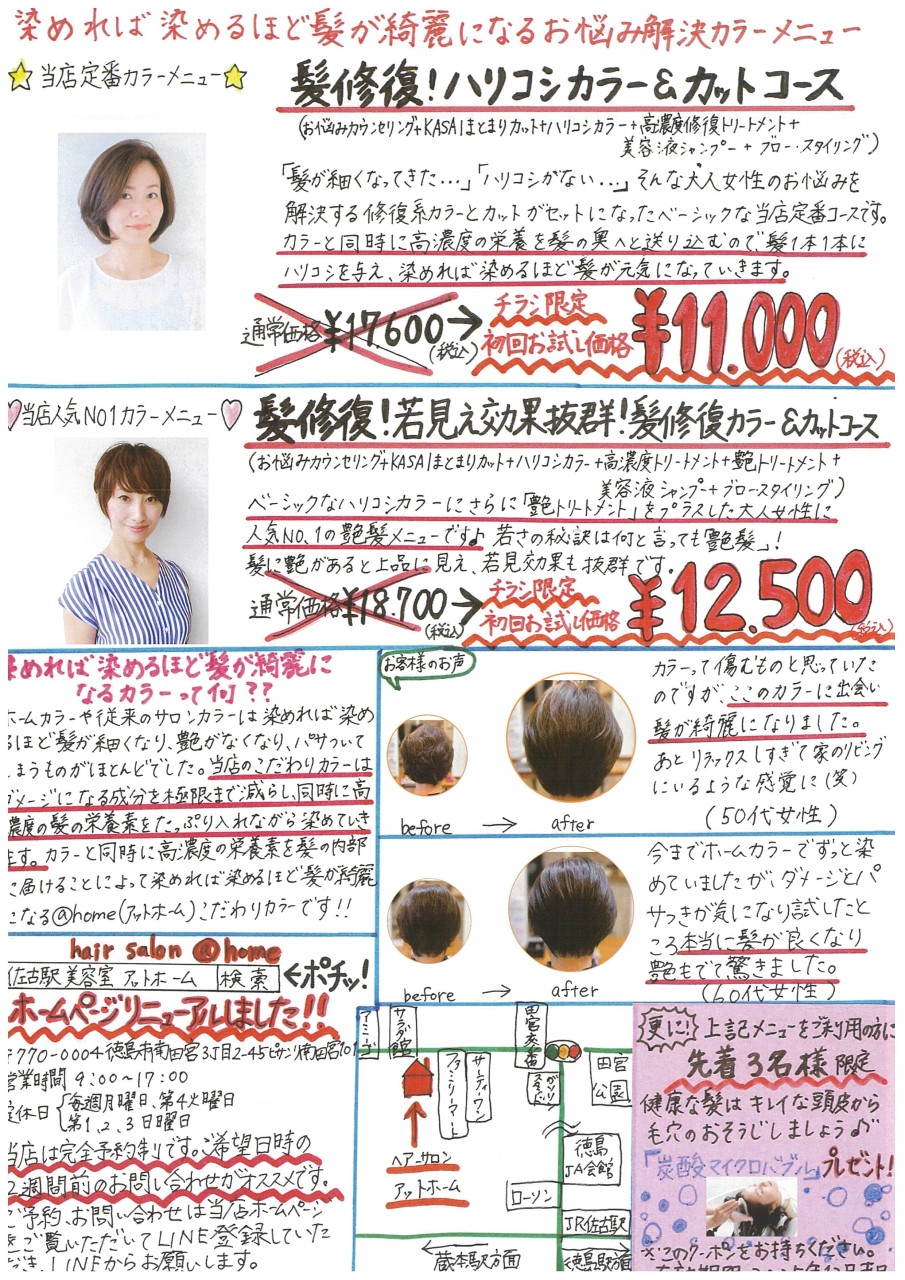 染めれば染めるほど髪が綺麗になるお悩み解決カラーメニュー
当店定番カラーメニュー
髪修復!ハリコシカラー&カットコース
(お悩みカウンセリング+KASAIまとまりカット+ハリコシカラー+高濃度修復トリートメント+
美容液シャンプー+ブロー・スタイリング)
「髪が細くなってきた…」「ハリコシがない…」そんな大人女性のお悩みを
解決する修復系カラーとカットがセットになったベーシックな当店定番コースです。
カラーと同時に高濃度の栄養を髪の奥へと送り込むので髪1本1本に
ハリコシを与え、染めれば染めるほど髪が元気になっていきます。
通常価格¥17,600(税込)→チラシ限定
初回お試し価格 ¥11.000(税込)
当店人気NO1カラーメニュー
髪修復!若見え効果抜群!髪修復カラー&カットコース
(お悩みカウンセリング+KASAIまとまりカット+ハリコシカラー+高濃度トリートメント+艶トリートメント+
美容液シャンプー+ブロースタイリング)
ベーシックなハリコシカラーにさらに「艶トリートメント」をプラスした大人女性に
人気NO.1の艶髪メニューです♪ 若さの秘訣は何と言っても「艶髪」!
髪に艶があると上品に見え、若見効果も抜群です。
通常価格¥18.700(税込)→チラシ限定
初回お試し価格 ¥12.500(税込)
染めれば染めるほど髪が綺麗に
なるカラーって何??
ホームカラーや従来のサロンカラーは染めれば染め
るほど髪が細くなり、艶がなくなり、パサついて
しまうものがほとんどでした。当店のこだわりカラーは
ダメージになる成分を極限まで減らし、同時に高
濃度の髪の栄養素をたっぷり入れながら染めていき
ます。カラーと同時に高濃度の栄養素を髪の内部
に届けることによって染めれば染めるほど髪が綺麗
になる@home(アットホーム)こだわりカラーです!!
お客様のお声
before → after
カラーって傷むものと思っていた
のですが、ここのカラーに出会い
髪が綺麗になりました。
あとリラックスしすぎて家のリビング
にいるような感覚に(笑)
(50代女性)
before → after
今までホームカラーでずっと染
めていましたが、ダメージとパ
サつきが気になり試したと
ころ本当に髪が良くなり
艶もでて驚きました。
(60代女性)
hair salon @home
佐古駅 美容室 アットホーム 検索 ←ポチッ!
ホームページリニューアルしました!!
〒770-0004 徳島市南田宮3丁目2-45ピサンリ南田宮101
営業時間 9:00~17:00
定休日 毎週月曜日、第4火曜日
第1、2、3日曜日
当店は完全予約制です。ご希望日時の
2週間前のお問い合わせがオススメです。
ご予約、お問い合わせは当店ホームページ
をご覧いただいてLINE登録していた
だき、LINEからお願いします。
アミーゴ
サラダ館
ファミリーマート
サーティーワン
田宮交番
ガソリンスタンド
田宮
公園
ヘアーサロン
アットホーム
徳島
JA会館
ローソン
JR佐古駅
←蔵本駅方面
徳島駅方面
更に! 上記メニューをご利用の方に
先着3名様限定
健康な髪はキレイな頭皮から
毛穴のおそうじしましょう♪
「炭酸マイクロバブル」プレゼント!
※このクーポンをお持ちください。